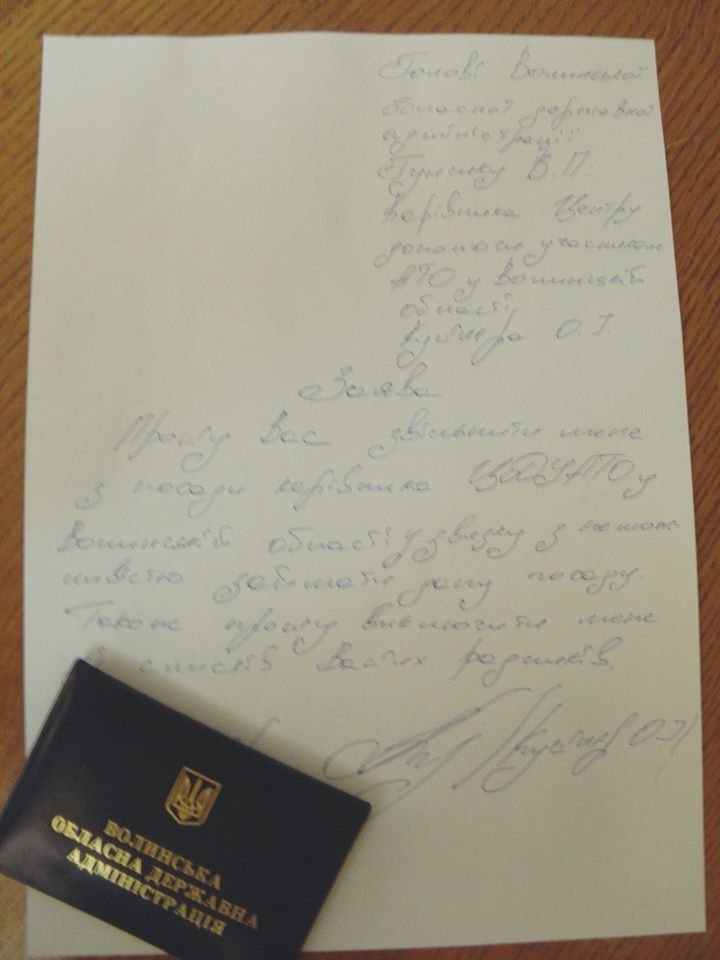 Голові Волинської
обласної державної
адміністрації
Гунчику В.П.
Керівника Центру
допомоги учасникам
АТО у Волинській
області
О.І.
Заява
Прошу Вас звільнити мене
з посади керівника ЦДУАТО у
Волинській області у звязку з немож-
ливістю займати дану посаду.
Також прошу виключити мене
зі списків Ваших радників.
О.І.
ВОЛИНСЬКА
ОБЛАСНА ДЕРЖАВНА
АДМІНІСТРАЦІЯ